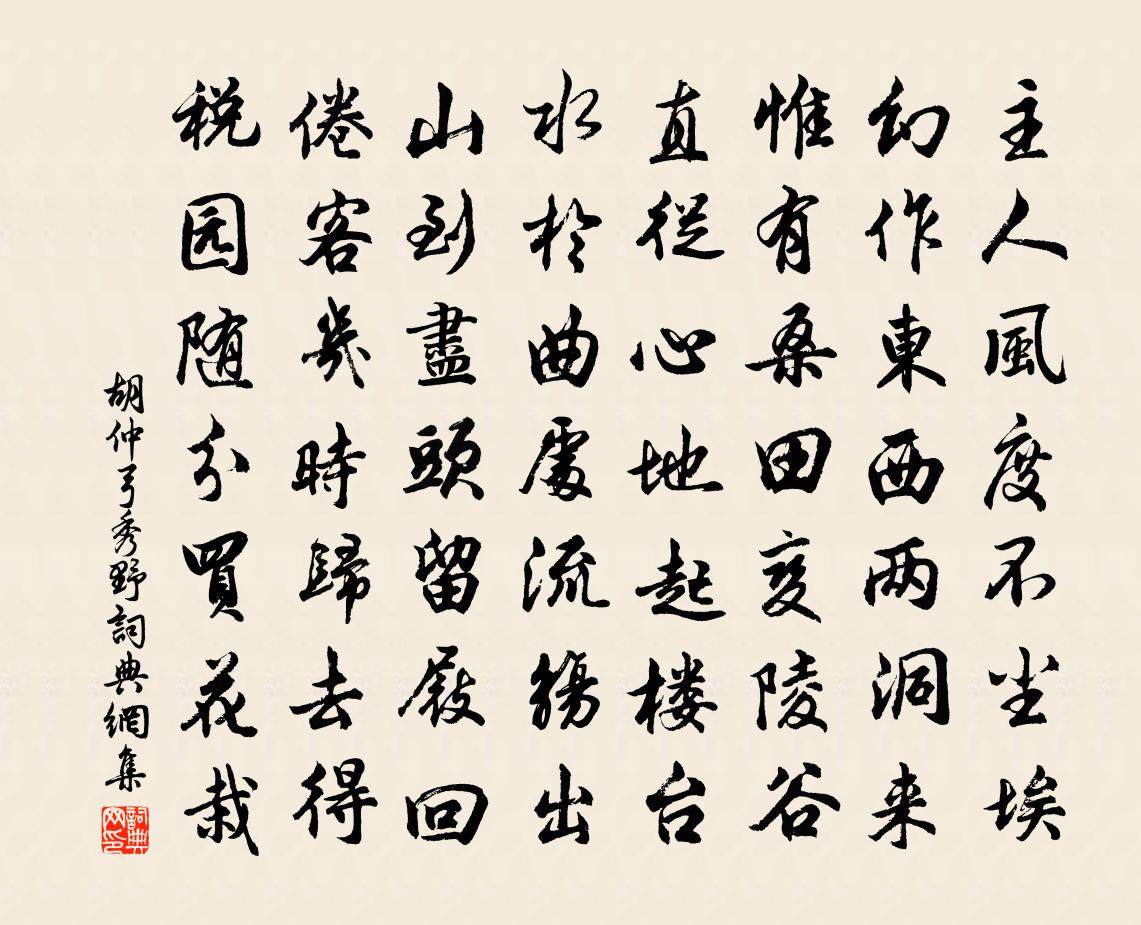 主人風度不尘埃
幻作東西两洞来
惟有桑田变陵谷
直從心地起楼台
水於曲處流觞出
山到盡頭留屐回
倦客幾時歸去得
税园随分買花栽
胡仲弓秀野詞典網集
詞典网印